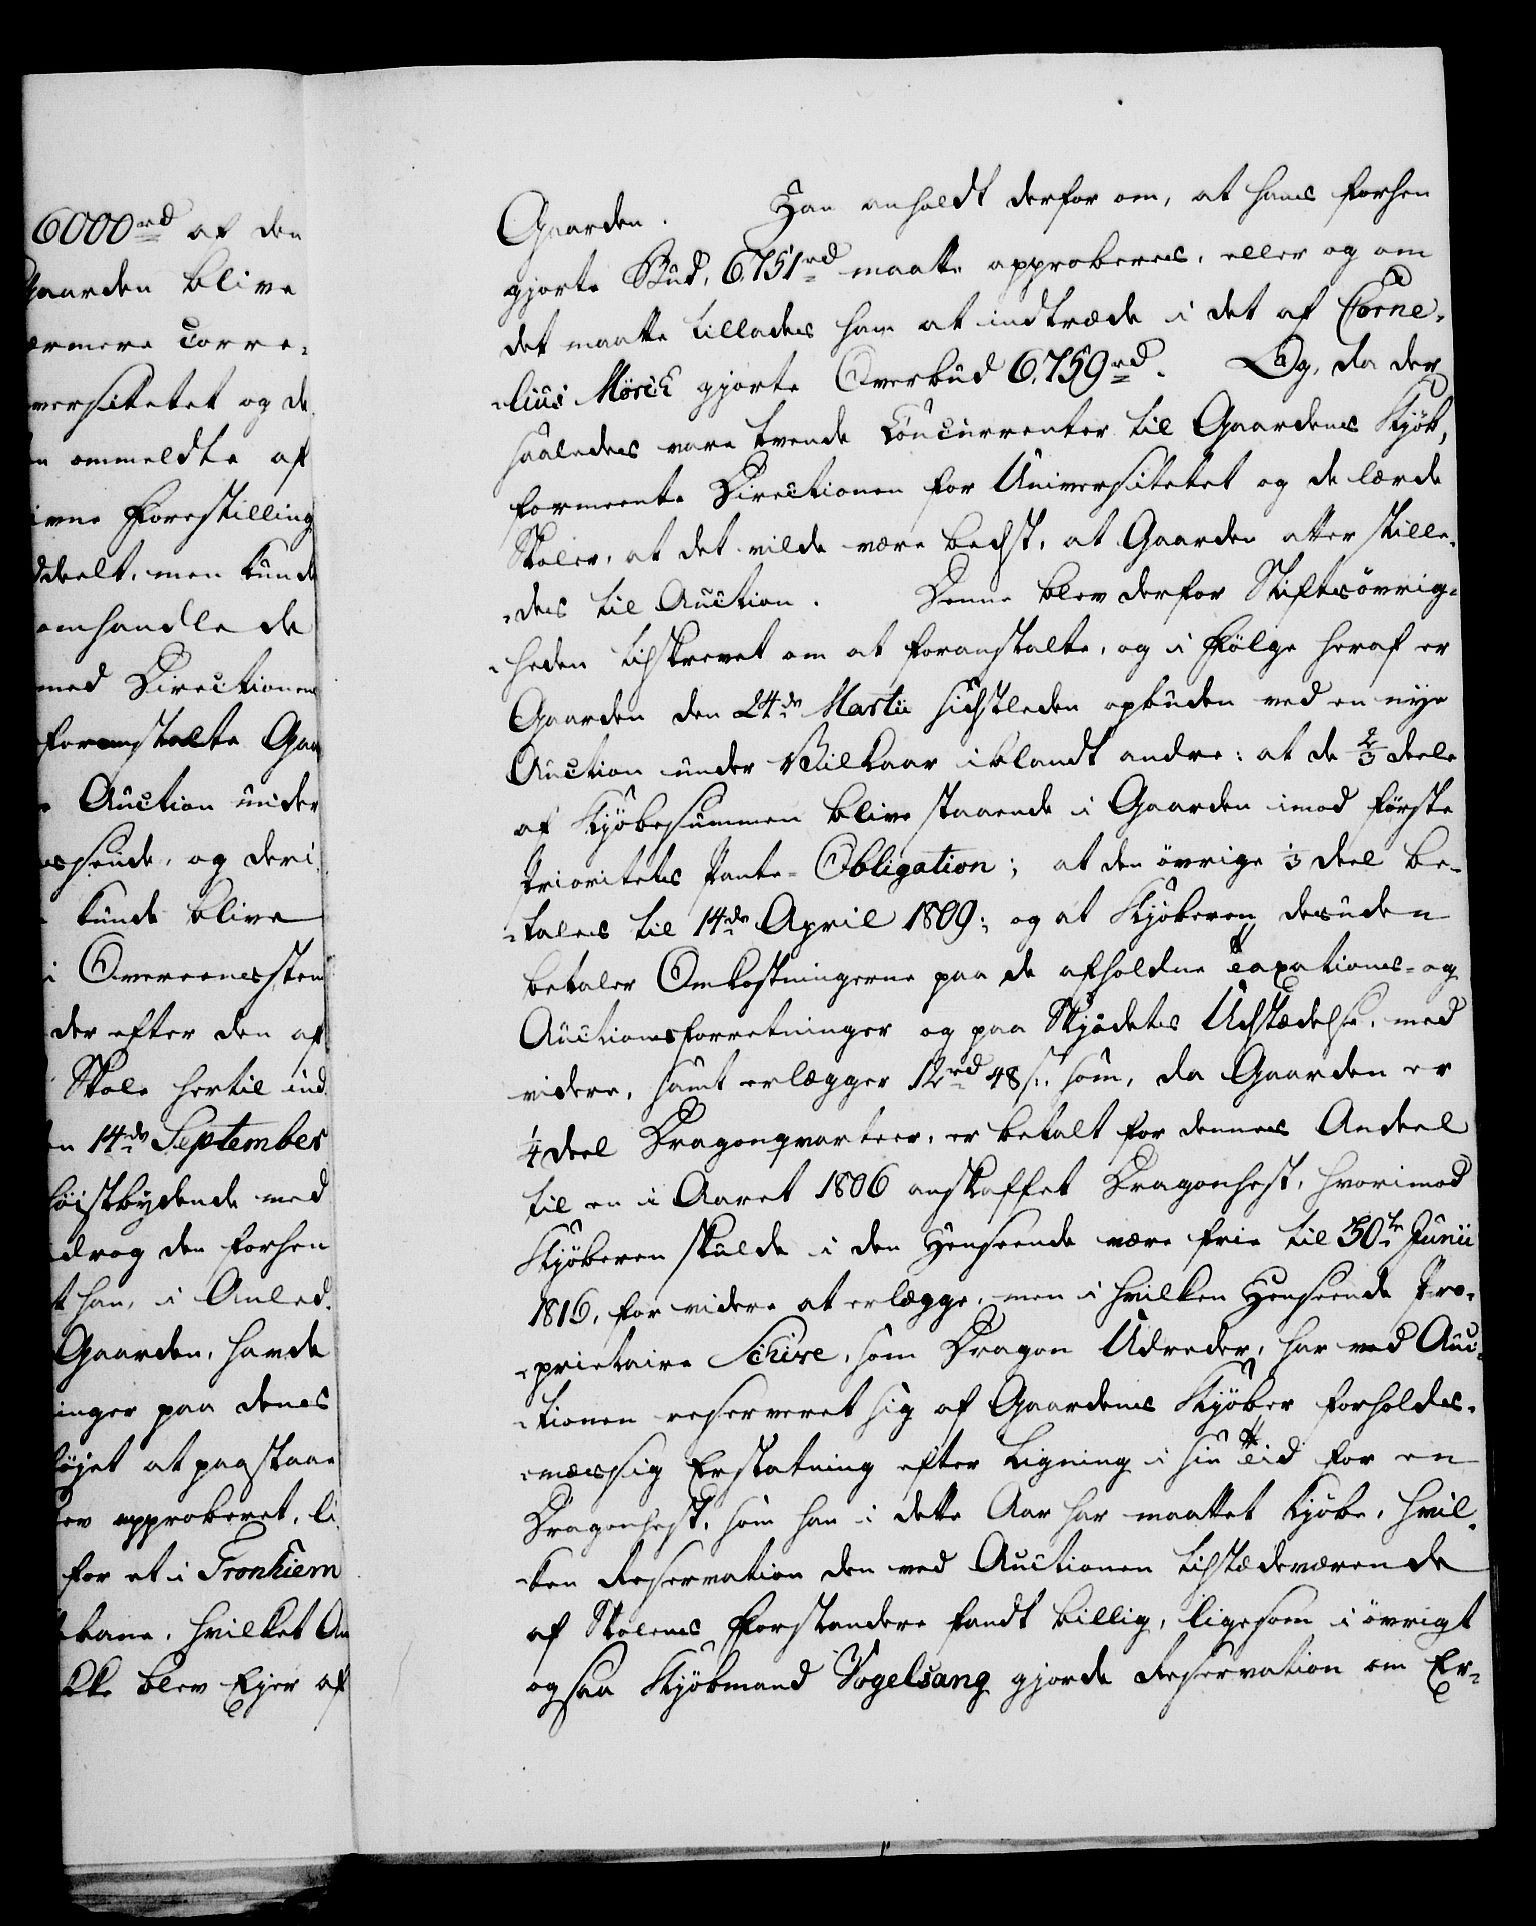 6000rd af den
Gaarden blive
ermere Corre-
versitetet og de
ommeldte af
ivne Forestilling
ddeelt, men kunde
omhandlede
med Directionens
foranstalte Gaa
Auction under
og deri
kunde blive
i Overeensstem
der efter den af
Skole hertil ind
14de September
høistbydende med
drog den forhen
han, i Anled.
Gaarden, havde
inger paa dens
føjet at paastaae
approberet, li
for et i Tronhiem
bane, hvilket An
blev Ejer af
Gaarden. Han anholdt derfor om, at hans forhen
gjorte Bud, 6751rd maatte approberes, eller og om
det maatte tillades ham at indtræde i det af Corne-
-lius Mørch gjorte Overbud 6,759rd. Og, da der
saaledes vare tvende Concurrenter til Gaardens Kjøb,
formeente Directionen for Universitetet og de lærde
Skoler, at det vilde være bedst, at Gaarden atter stille-
-des til Auction. Denne blev derfor Stiftsövrig-
-heden tilskrevet om at foranstalte, og i Følge heraf er
Gaarden den 24de Martii sidstleden opbuden ved en nye
Auction under Vilkaar iblandt andre: at de 2/3 deele
af Kjøbesummen blive staaende i Gaarden imod første
Prioritets Pante-Obligation; at den övrige 1/3 deel be-
-tales til 14de April 1809; og at Kjøberen desuden
betaler Omkostningerne paa de afholdne Taxations- og
Auctionsforretninger og paa Skjødets Udstædelse, med
videre, samt erlægger 12rd 48 s., som, da Gaarden er
1/4 deel Dragonqvarteer, er betalt for dennes Andeel
til en i Aaret 1806 anskaffet Dragonhest, hvorimod
Kjøberen skulde i den Henseende være frie til 30te Junii
1816, for videre at erlægge, men i hvilken Henseende Pro-
-prietaire Schive, som Dragon Udreder, har ved Auc-
-tionen reserveret sig af Gaardens Kjøber forholds-
-mæssig Erstatning efter Ligning i sin Tid for en
Dragonhest, som han i dette Aar har maattet kjøbe, hvil-
-ken Reservation den ved Auctionen tilstædeværende
af Skolens Forstandere fandt billig, ligesom i övrigt
ogsaa Kjøbmand Vogelsang gjorde Reservation om Er-